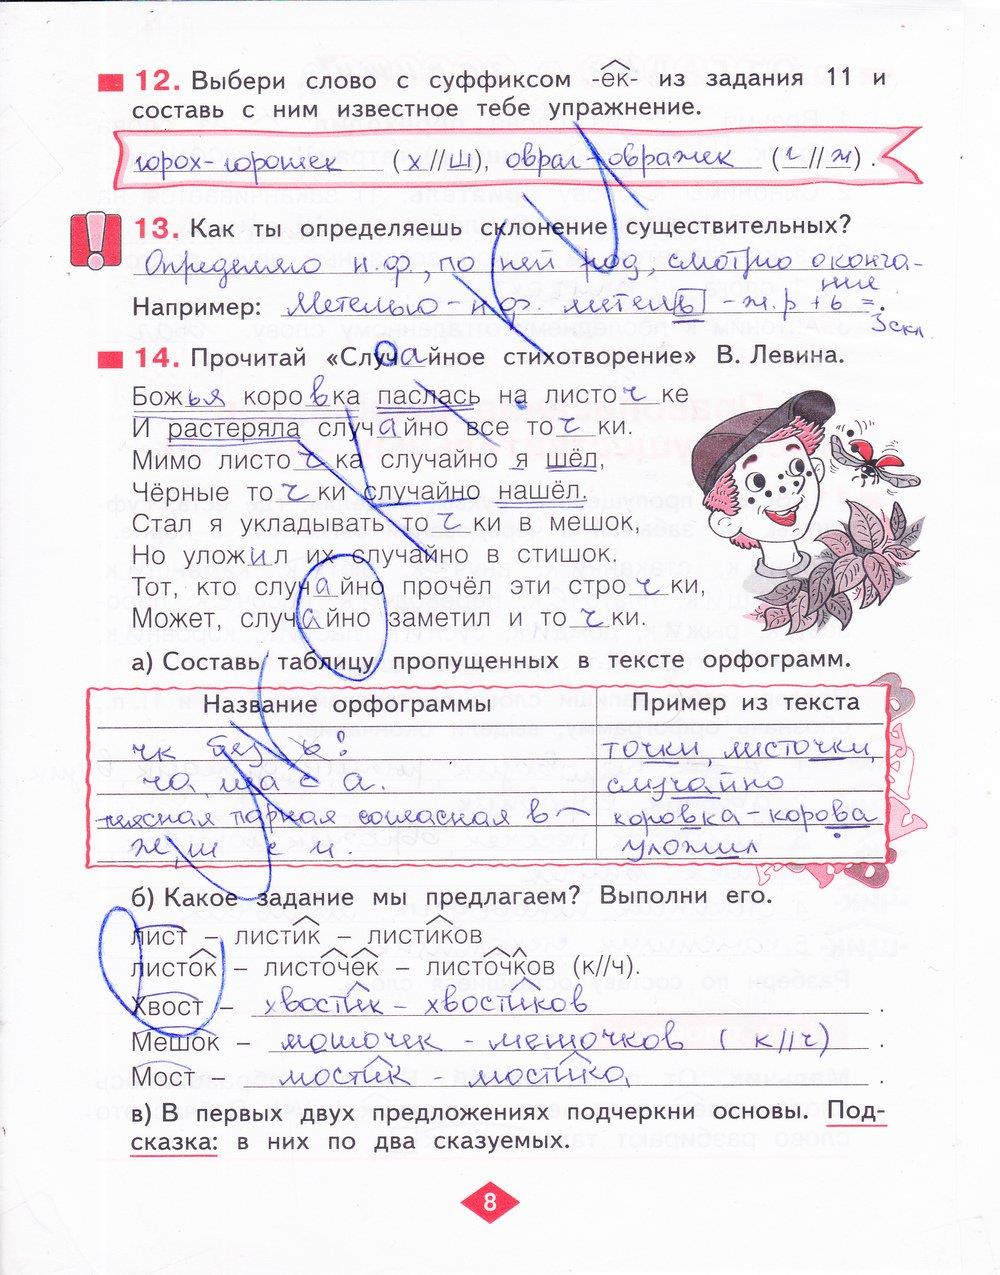 12. Выбери слово с суффиксом -ек- из задания 11 и
составь с ним известное тебе упражнение.
горох-горошек (х//ш), овраг-овражек (г//ж).
13. Как ты определяешь склонение существительных?
Определяю н.ф., по ней род, смотрю оконча-
ние
Например: Метелью - н.ф. метель - ж.р + ь =
3 скл.
14. Прочитай «Случайное стихотворение» В. Левина.
Божья коровка паслась на листочке
И растеряла случайно все точки.
Мимо листочка случайно я шёл,
Чёрные точки случайно нашёл.
Стал я укладывать точки в мешок,
Но уложил их случайно в стишок.
Тот, кто случайно прочёл эти строчки,
Может, случайно заметил и точки.
а) Составь таблицу пропущенных в тексте орфограмм.
Название орфограммы Пример из текста
чк без ь! точки, листочки,
ча, ща с а. случайно
неясная парная согласная в коровка-корова
жи, ши с и. уложил
б) Какое задание мы предлагаем? Выполни его.
лист – листик – листиков
листок – листочек – листочков (к//ч).
Хвост – хвостик - хвостиков.
Мешок – мошочек - мешочков (к//ч).
Мост – мостик - мостико.
в) В первых двух предложениях подчеркни основы. Под-
сказка: в них по два сказуемых.
8